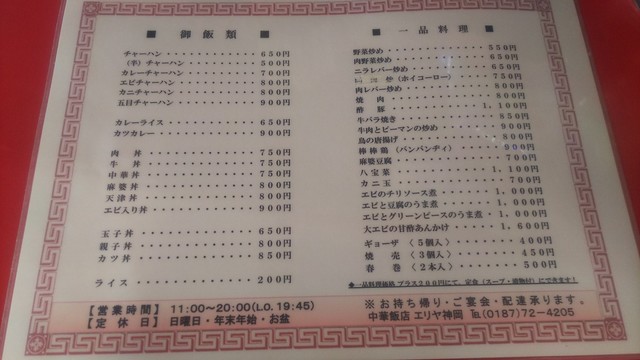 ■ 御飯類 ■
チャーハン・・・・・・・・・・・・650円
(半)チャーハン・・・・・・・・・・500円
カレーチャーハン・・・・・・・・・700円
エビチャーハン・・・・・・・・・・800円
カニチャーハン・・・・・・・・・・800円
五目チャーハン・・・・・・・・・・900円
カレーライス・・・・・・・・・・・650円
カツカレー・・・・・・・・・・・・900円
肉丼・・・・・・・・・・・・・・・750円
牛丼・・・・・・・・・・・・・・・750円
中華丼・・・・・・・・・・・・・・750円
麻婆丼・・・・・・・・・・・・・・800円
天津丼・・・・・・・・・・・・・・800円
エビ入り丼・・・・・・・・・・・・900円
玉子丼・・・・・・・・・・・・・・650円
親子丼・・・・・・・・・・・・・・800円
カツ丼・・・・・・・・・・・・・・850円
ライス・・・・・・・・・・・・・・200円
■ 一品料理 ■
野菜炒め・・・・・・・・・・・・・550円
肉野菜炒め・・・・・・・・・・・・650円
ニラレバー炒め・・・・・・・・・・650円
(ホイコーロー)・・・・・・・・・・750円
肉レバー炒め・・・・・・・・・・・800円
焼肉・・・・・・・・・・・・・・・800円
酢豚・・・・・・・・・・・・・・・1,100円
牛バラ焼き・・・・・・・・・・・・850円
牛肉とピーマンの炒め・・・・・・・900円
鳥の唐揚げ・・・・・・・・・・・・800円
棒棒鶏(バンバンヂィ)・・・・・・・900円
麻婆豆腐・・・・・・・・・・・・・700円
八宝菜・・・・・・・・・・・・・・1,100円
カニ玉・・・・・・・・・・・・・・700円
エビのチリソース煮・・・・・・・・1,000円
エビと豆腐のうま煮・・・・・・・・1,000円
エビとグリーンピースのうま煮・・・1,000円
大エビの甘酢あんかけ・・・・・・・1,600円
ギョーザ〈5個入〉・・・・・・・・・400円
焼売〈3個入〉・・・・・・・・・・・450円
春巻〈2本入〉・・・・・・・・・・・500円
◆一品料理価格プラス200円にて、定食(スープ・漬物付)にできます!
【営業時間】 11:00~20:00(L.O.19:45)
【定休日】 日曜日・年末年始・お盆
※お持ち帰り・ご宴会・配達承ります。
中華飯店 エリヤ神岡 ℡(0187)72-4205